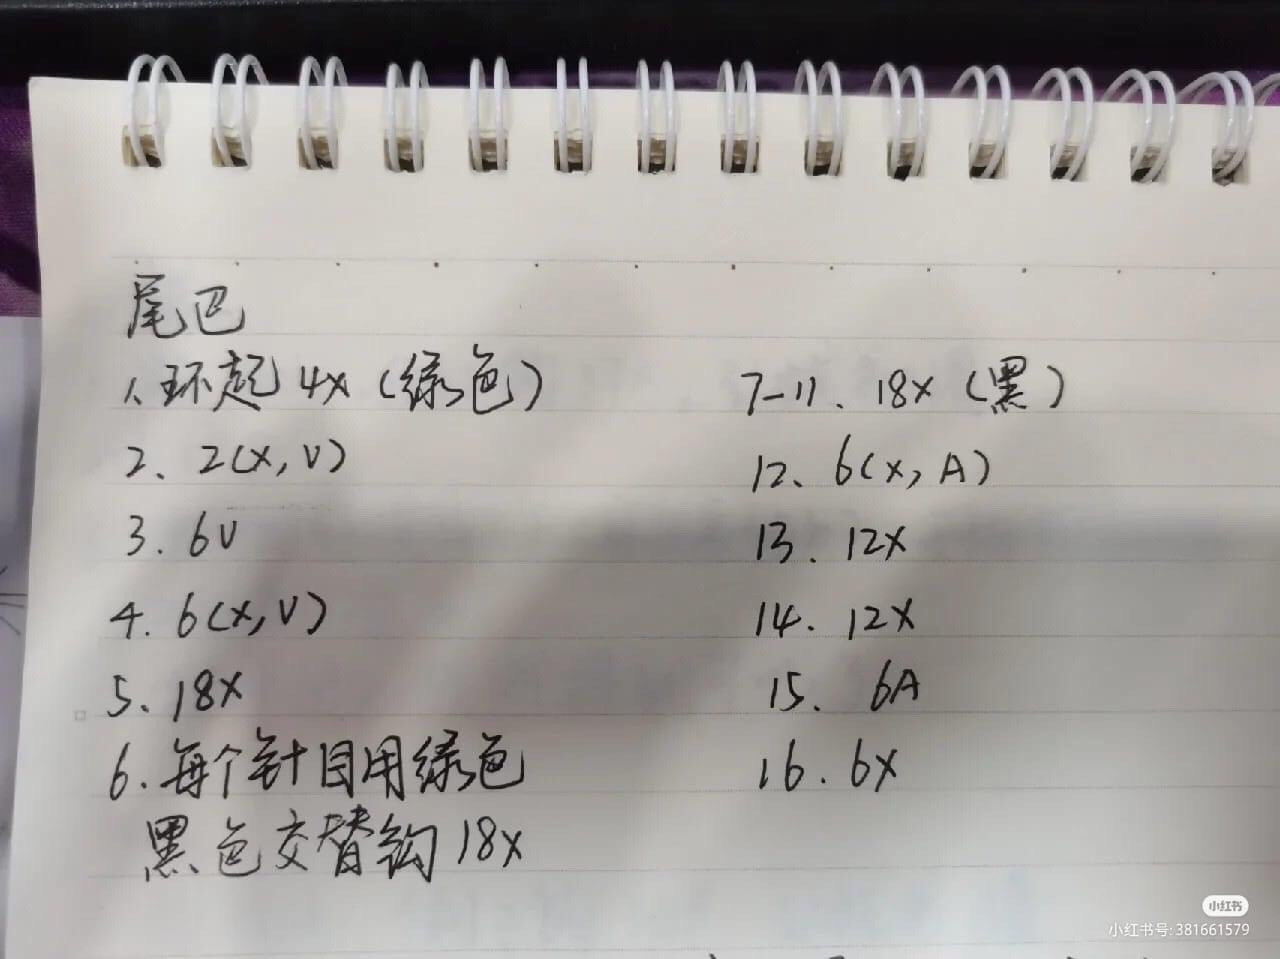 尾巴
1、环起 4x (绿色)
2、2(x, v)
3. 6v
4. 6(x, v)
5、18x
6. 每个针目用绿色
黑色交替钩 18x
7-11、18x (黑)
12、6(x, A)
13. 12x
14. 12x
15. 6A
16. 6x
小红书
小红书号: 381661579